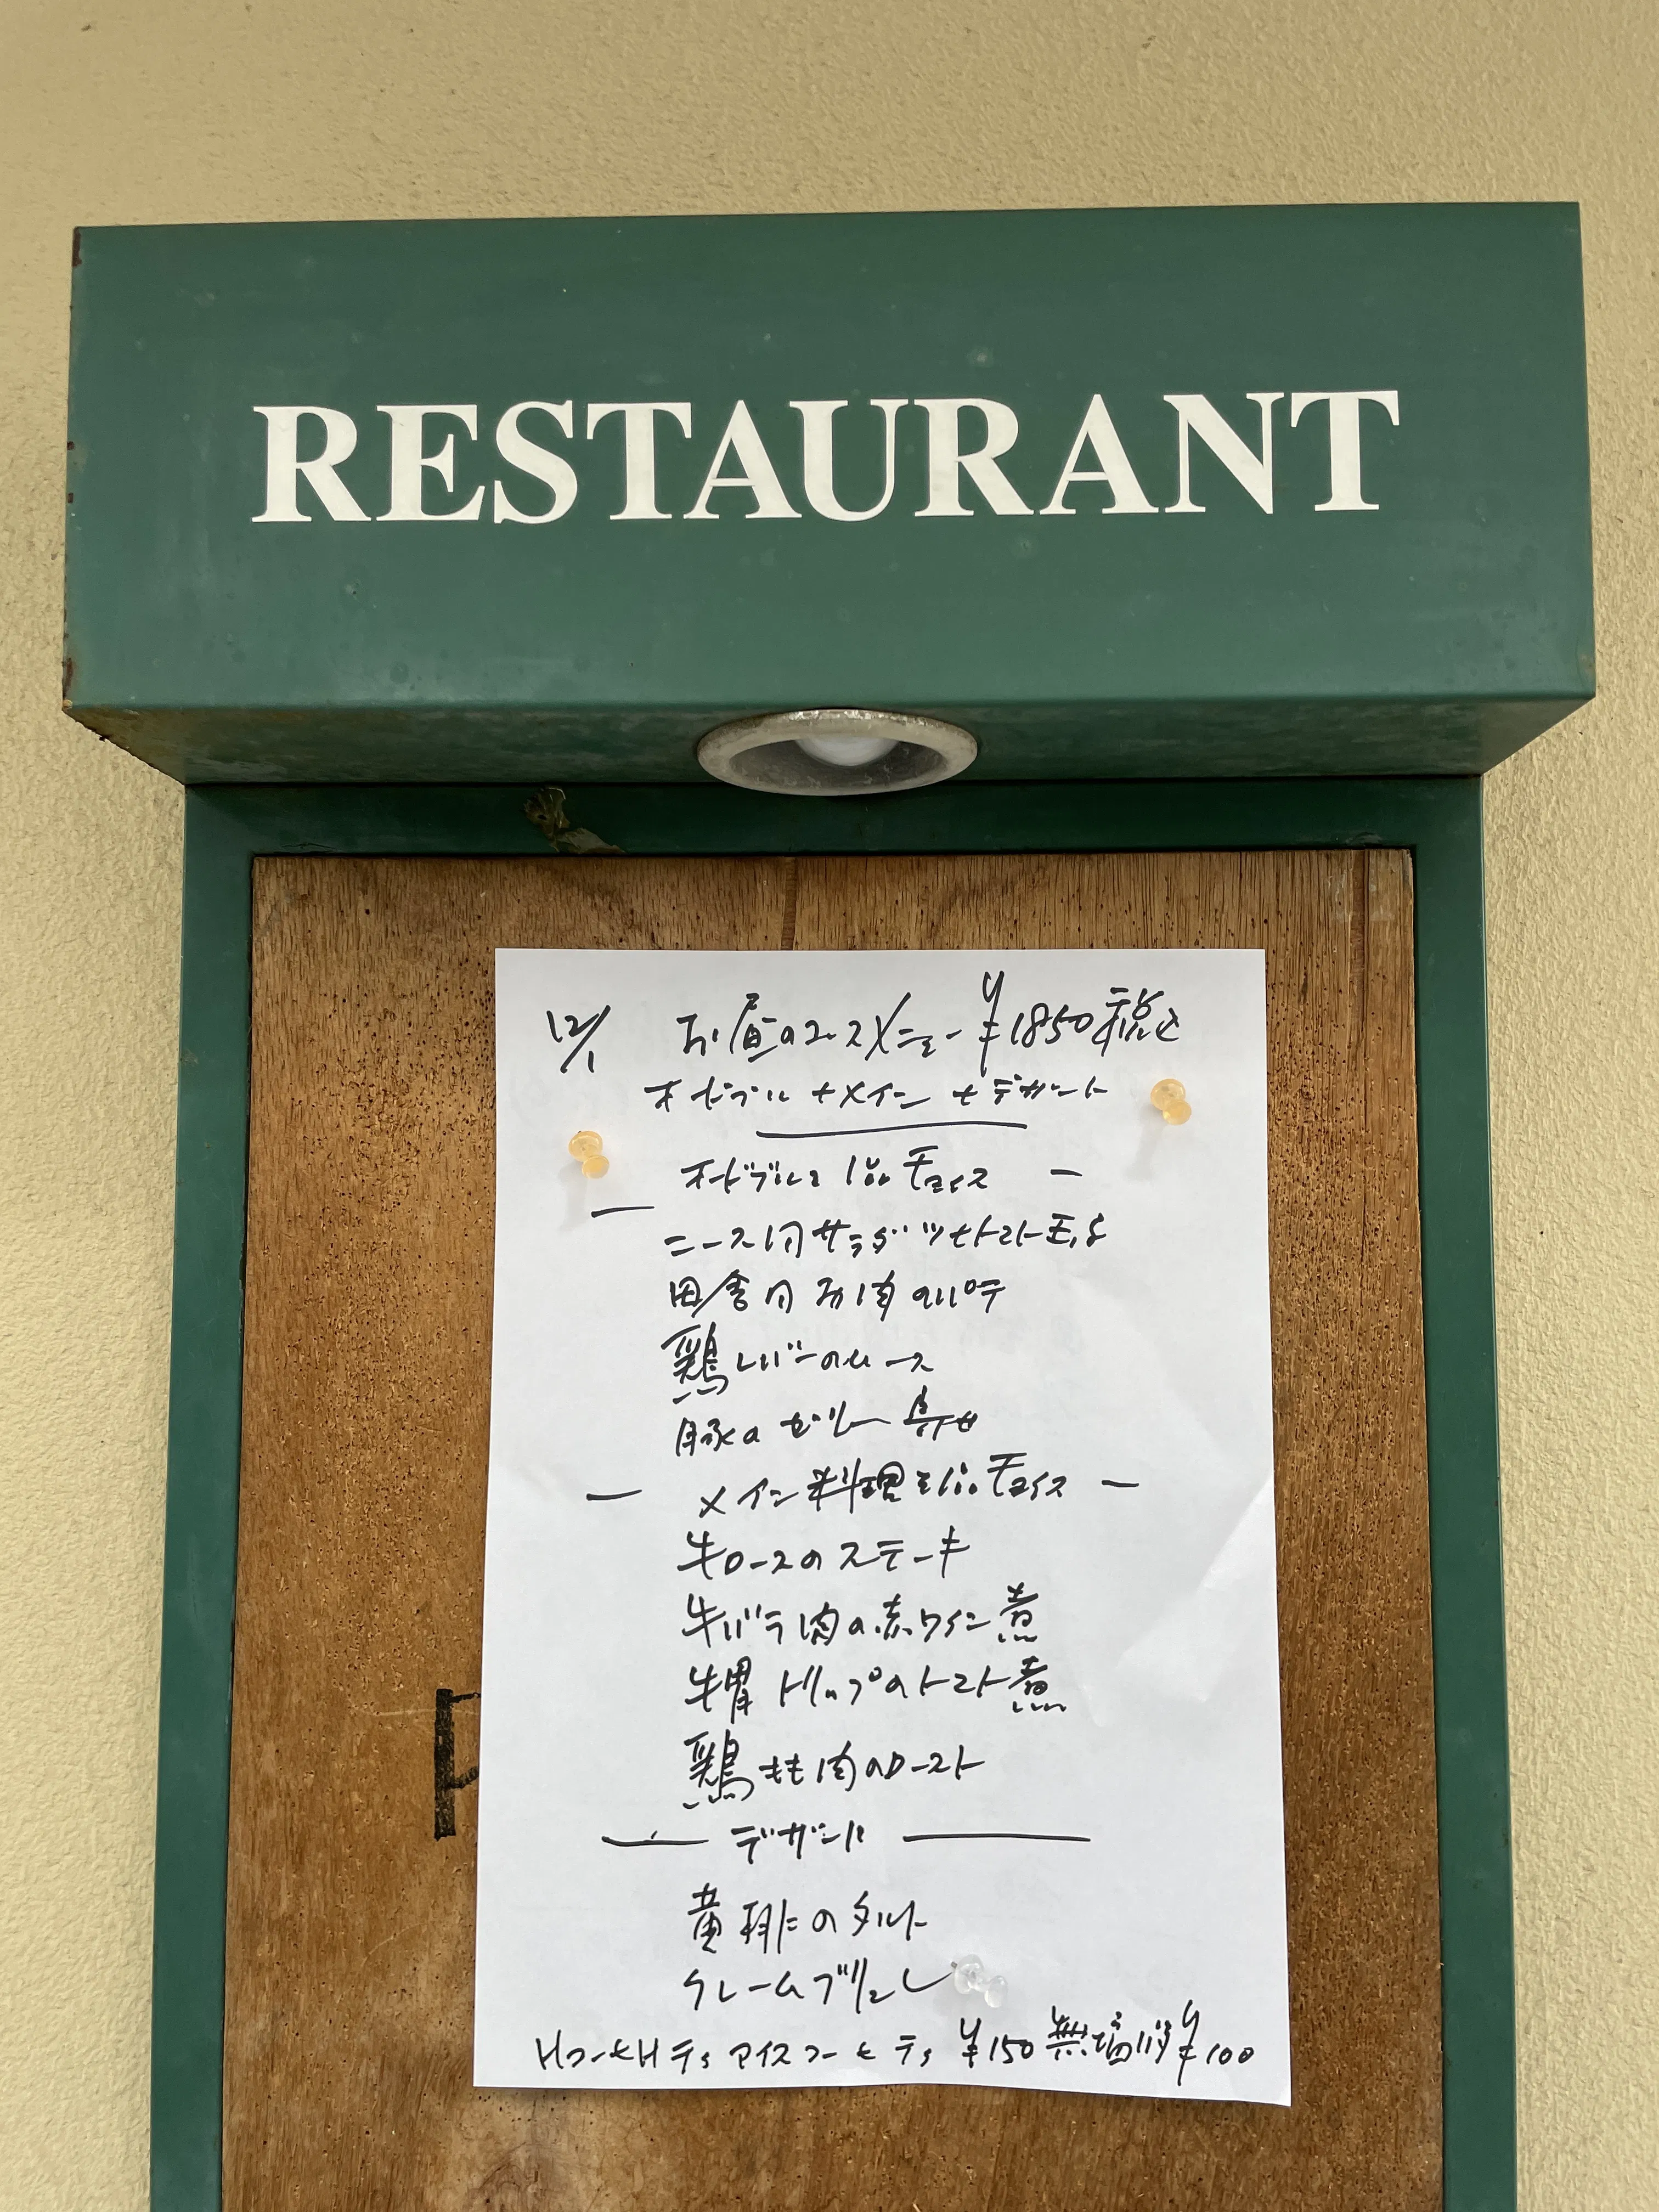 RESTAURANT
12/1 お昼のコースメニュー ¥1850税込
オードブル+メイン+デザート
オードブルを1品チョイス ー
ニース風サラダ ツナトマト玉子
田舎風お肉のパテ
鶏レバーのムース
豚のゼリー寄せ
ー メイン料理を1品チョイス ー
牛ロースのステーキ
牛バラ肉の赤ワイン煮
牛胃トリップのトマト煮
鶏もも肉のロースト
デザート
黄桃のタルト
クレームブリュレ
HコーヒHティアイスコーヒティ ¥150 無塩バタ ¥100